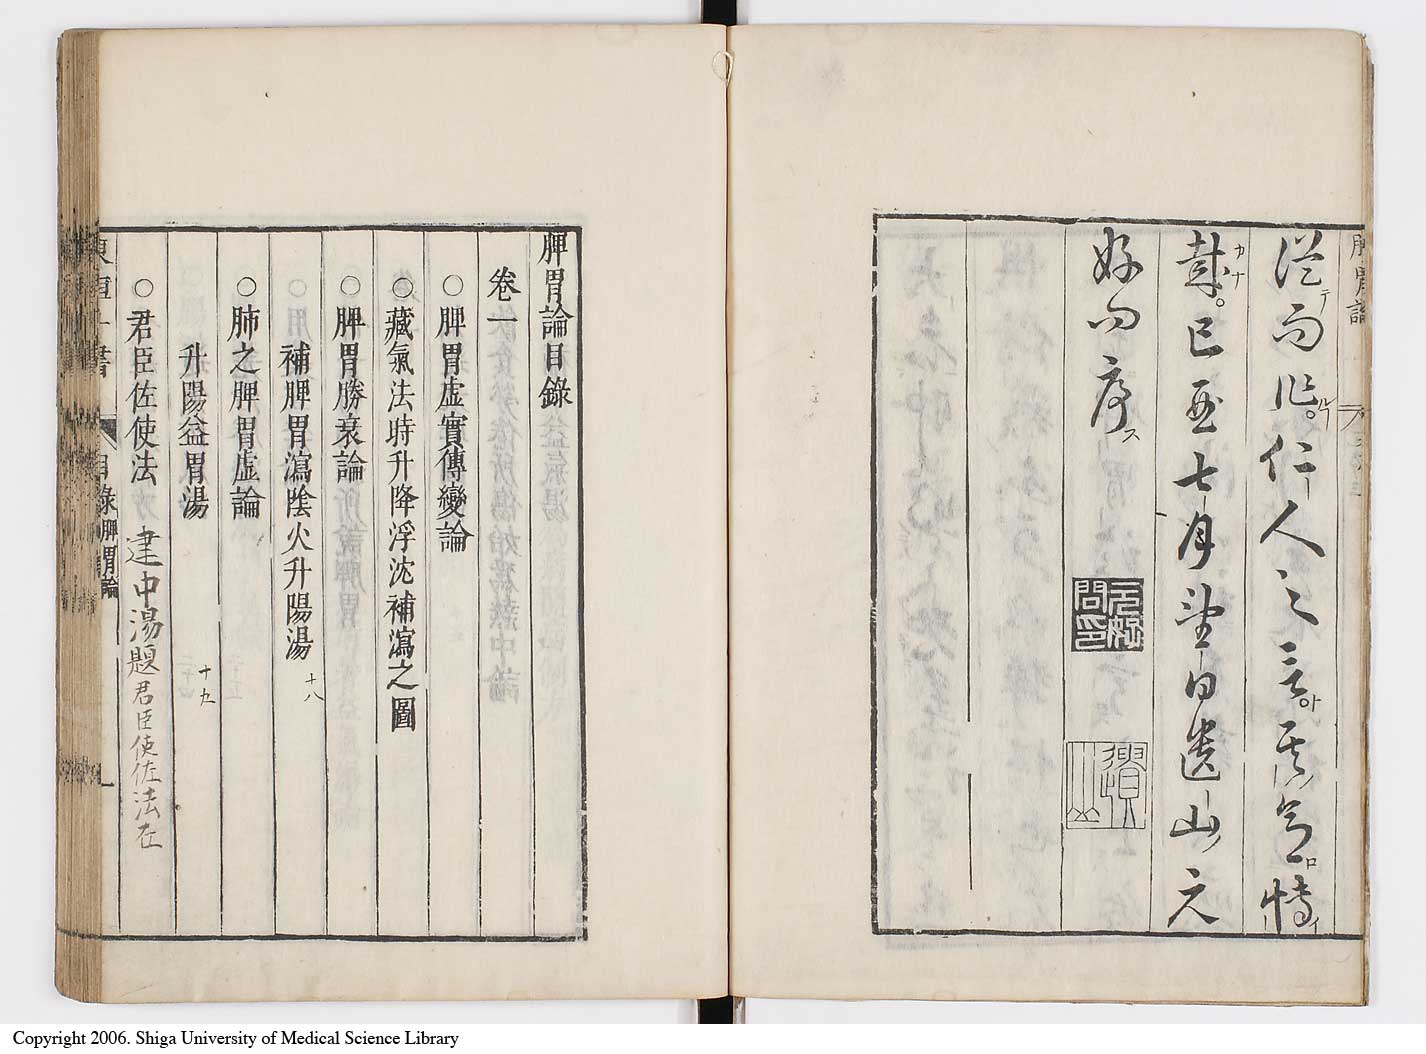 脾胃論
從而作仁人之言其意博
哉已酉七月望日遺山元
好問序
元好問印
遺山
脾胃論目錄
卷一
○脾胃虛實傳變論
○藏氣法時升降浮沈補瀉之圖
○脾胃勝衰論
補脾胃瀉陰火升陽湯 十八
○肺之脾胃虛論
升陽益胃湯 十九
○君臣佐使法 建中湯題君臣使佐法在
東垣十書 目錄脾胃論 一
Copyright 2006. Shiga University of Medical Science Library